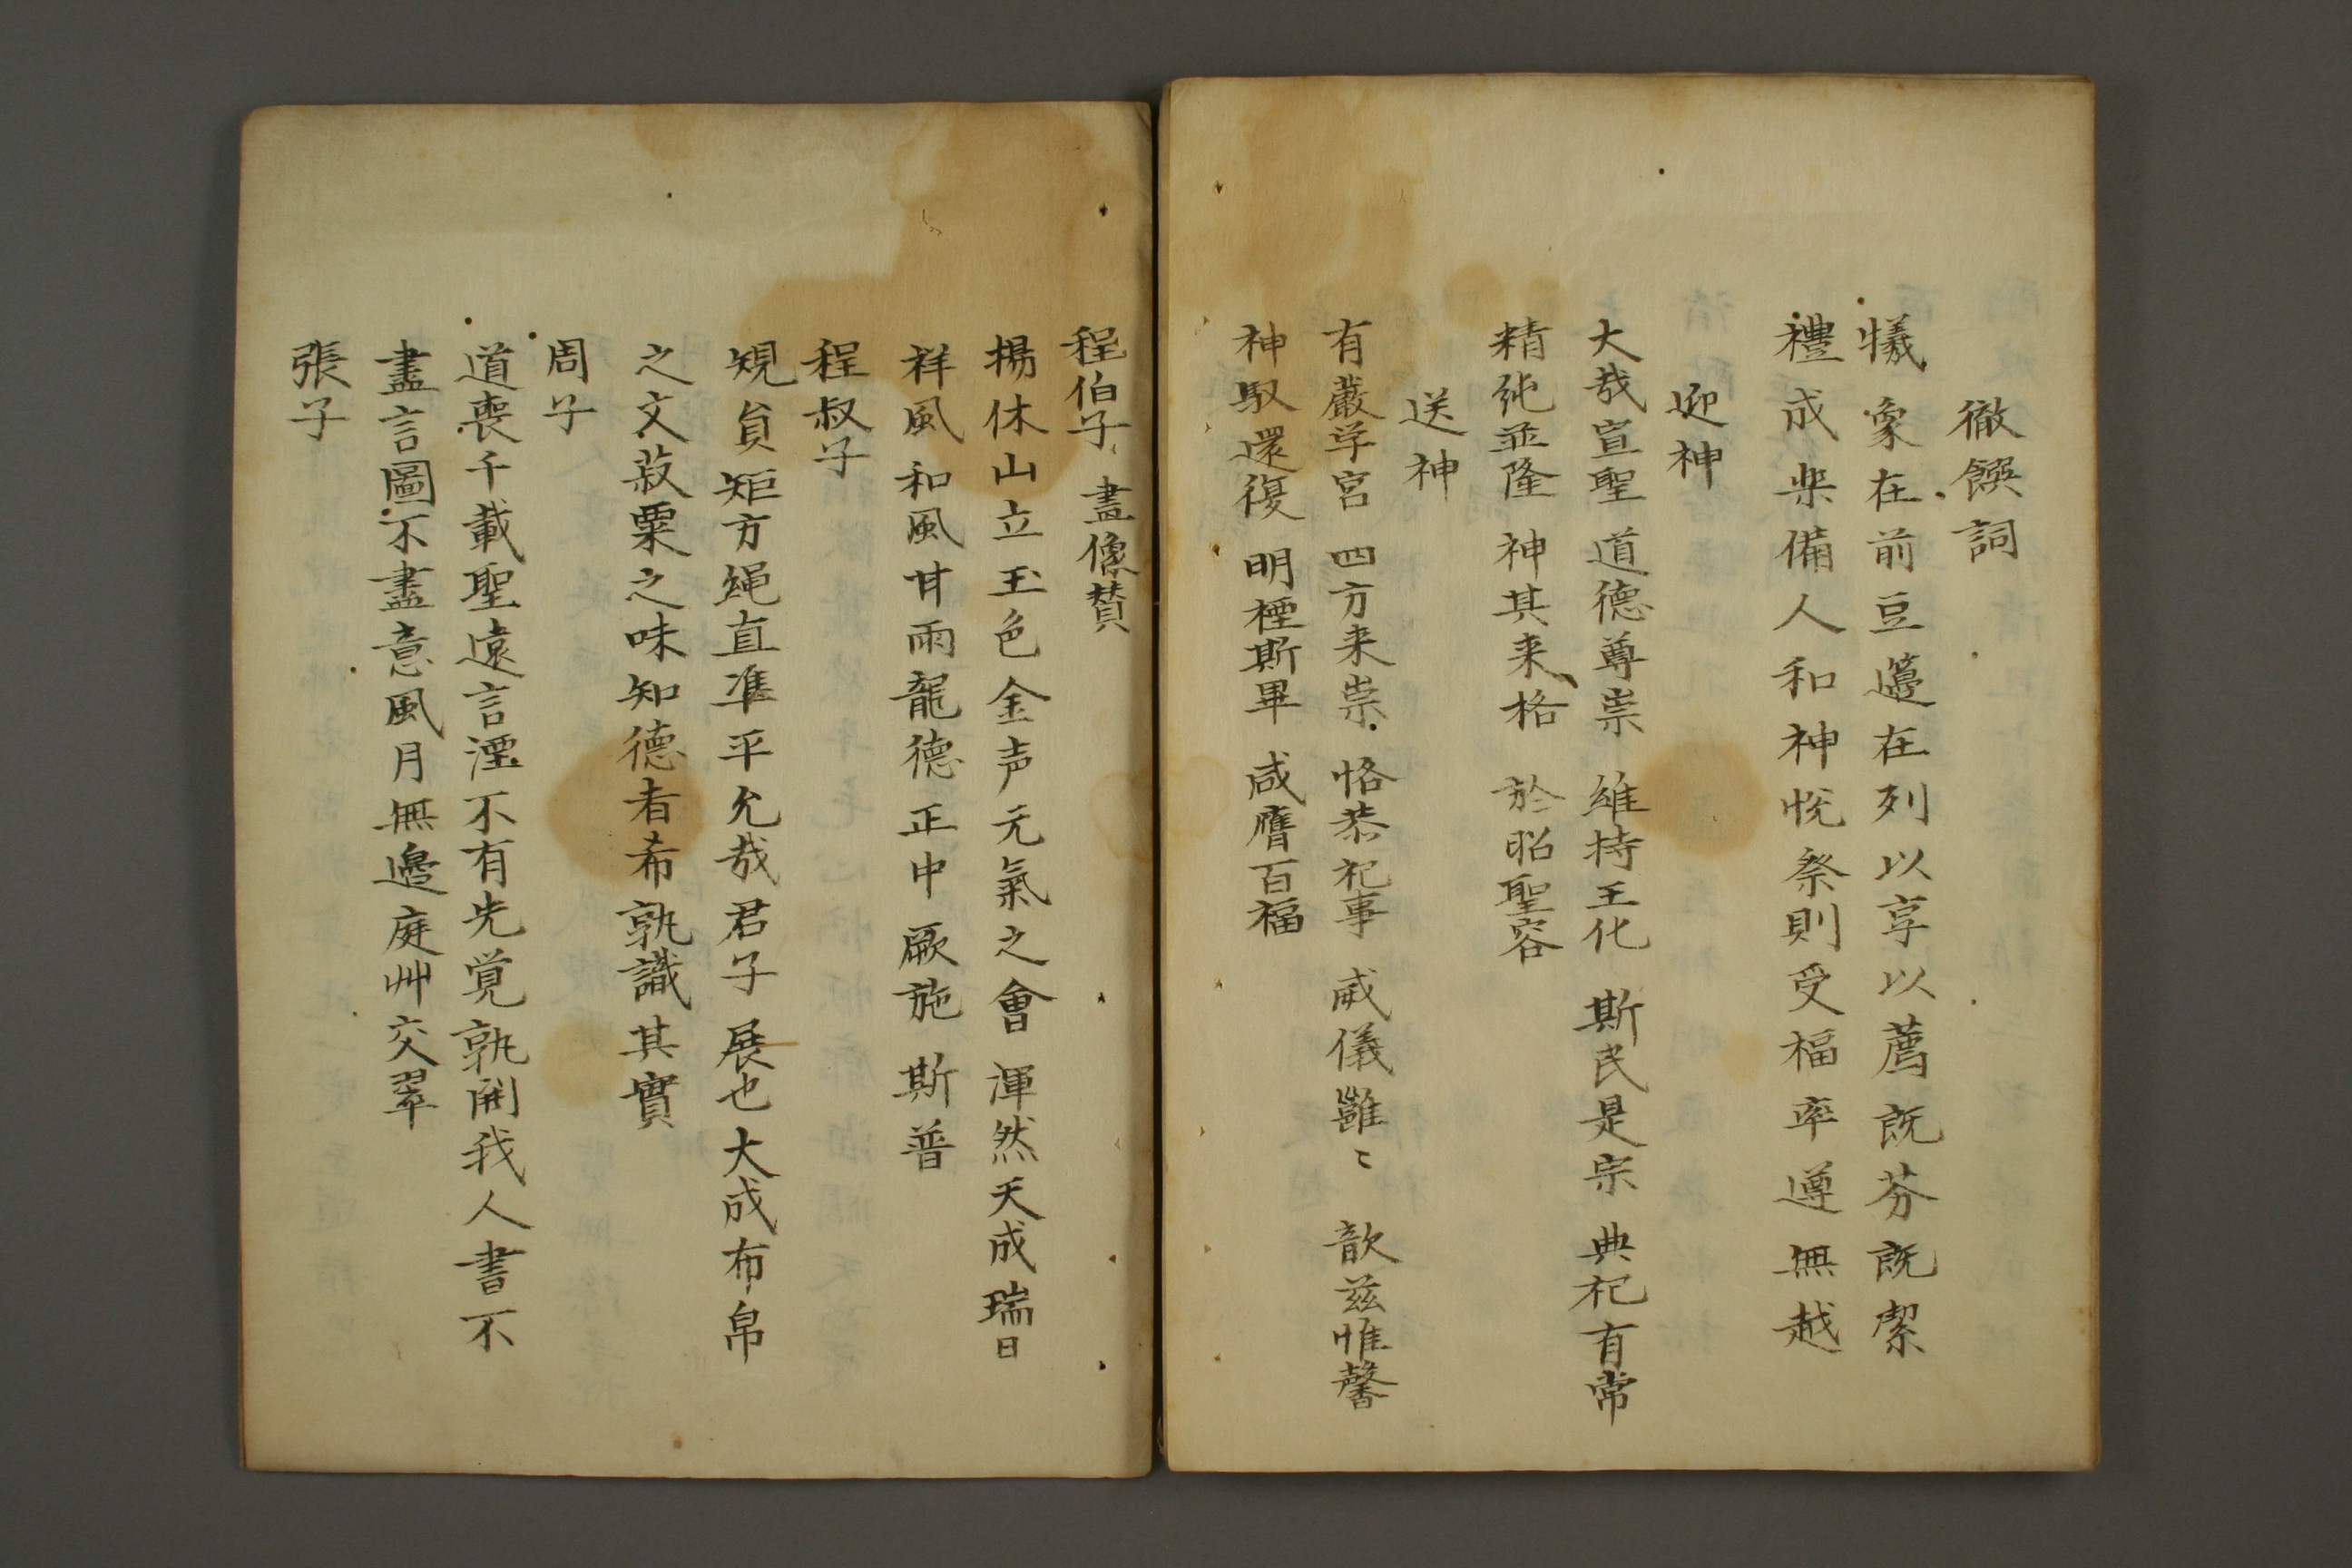 徹饌詞
犧象在前豆籩在列以享以薦既芬既潔
禮成楽備人和神悅祭則受福率遵無越
迎神
大哉宣聖 道德尊崇 維持王化 斯民是宗 典祀有常
精純並隆 神其来格 於昭聖容
送神
有嚴学宮 四方来崇 恪恭祀事 威儀雝〻 歆兹惟馨
神馭還復 明禋斯畢 咸膺百福
程伯子 畫像賛
揚休山立玉色金声元氣之會渾然天成瑞日
祥風和風甘雨龍德正中厥施斯普
程叔子
規員矩方繩直準平允哉君子展也大成布帛
之文菽粟之味知德者希孰識其實
周子
道喪千載聖遠言湮不有先覚孰開我人書不
盡言圖不盡意風月無邊庭艸交翠
張子